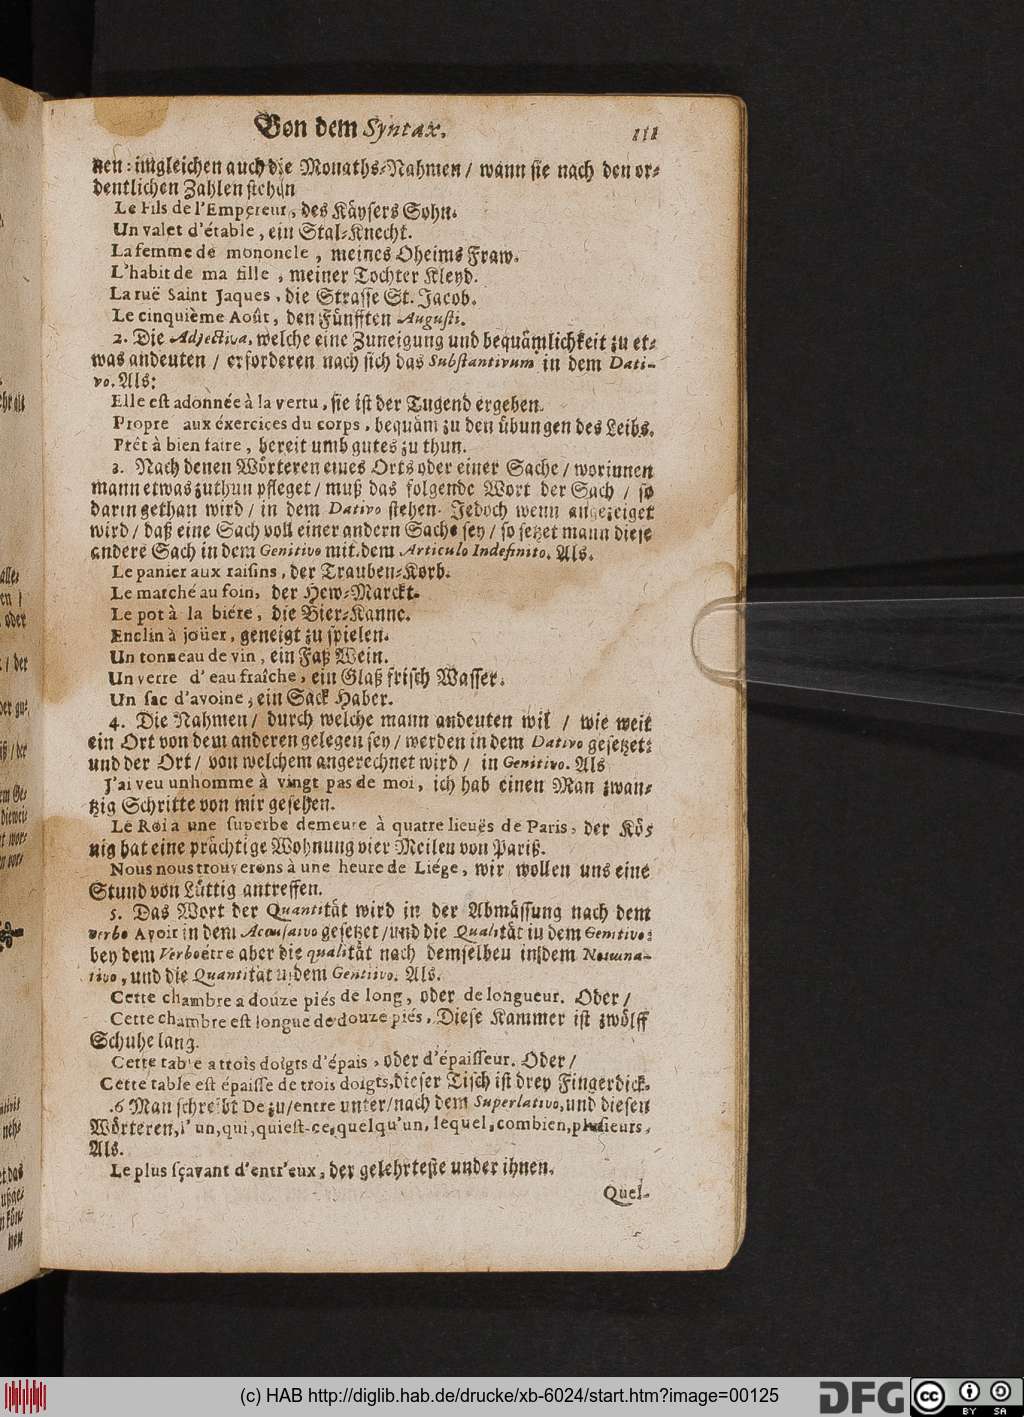 Von dem Syntax. 111
nen: imgleichen auch die Monaths-Nahmen / wann sie nach den or-
dentlichen Zahlen stehen
Le Fils de l'Empereur, des Käysers Sohn.
Un valet d'étable, ein Stal-Knecht.
La femme de mononcle, meines Oheims Fraw.
L'habit de ma fille, meiner Tochter Kleyd.
La ruë Saint Jaques, die Strasse St. Jacob.
Le cinquième Août, den Fünfften Augusti.
2. Die Adjectiva, welche eine Zuneigung und bequämlichkeit zu et-
was andeuten / erforderen nach sich das Substantivum in dem Dati-
vo. Als:
Elle est adonnée à la vertu, sie ist der Tugend ergeben.
Propre aux éxercices du corps, bequäm zu den übungen des Leibs.
Prêt à bien faire, bereit umb gutes zu thun.
3. Nach denen Wörteren eines Orts oder einer Sache / worinnen
mann etwas zuthun pfleget / muß das folgende Wort der Sach / so
darin gethan wird / in dem Dativo stehen. Jedoch wenn angezeiget
wird / daß eine Sach voll einer andern Sache sey / so setzet mann diese
andere Sach in dem Genitivo mit dem Articulo Indefinito. Als.
Le panier aux raisins, der Trauben-Korb.
Le marché au foin, der Hew-Marckt.
Le pot à la biére, die Bier-Kanne.
Enclin à joüer, geneigt zu spielen.
Un tonneau de vin, ein Faß Wein.
Un verre d'eau fraîche, ein Glaß frisch Wasser.
Un sac d'avoine, ein Sack Haber.
4. Die Nahmen / durch welche mann andeuten wil / wie weit
ein Ort von dem anderen gelegen sey / werden in dem Dativo gesetzet:
und der Ort / von welchem angerechnet wird / in Genitivo. Als
J'ai veu unhomme à vingt pas de moi, ich hab einen Man zwan-
tzig Schritte von mir gesehen.
Le Roi a une superbe demeure à quatre lieuës de Paris, der Kö-
nig hat eine prächtige Wohnung vier Meilen von Pariß.
Nous nous trouverons à une heure de Liége, wir wollen uns eine
Stund von Lüttig antreffen.
5. Das Wort der Quantität wird in der Abmässung nach dem
verbo Avoir in dem Accusativo gesetzet / und die Qualität in dem Genitivo:
bey dem Verbo être aber die qualität nach demselben in dem Nomina-
tivo, und die Quantität in dem Genitivo. Als.
Cette chambre a douze piés de long, oder de longueur. Oder /
Cette chambre est longue de douze piés, Diese Kammer ist zwölff
Schuhe lang.
Cette table a trois doigts d'épais, oder d'épaisseur. Oder /
Cette table est épaisse de trois doigts, dieser Tisch ist drey Finger dick.
.6 Man schreibt De zu / entre unter / nach dem Superlativo, und diesen
Wörteren, l'un, qui, qui est-ce, quelqu'un, lequel, combien, plusieurs,
Als.
Le plus sçavant d'entr'eux, der gelehrteste under ihnen.
Quel-
(c) HAB http://diglib.hab.de/drucke/xb-6024/start.htm?image=00125
DFG cc BY SA